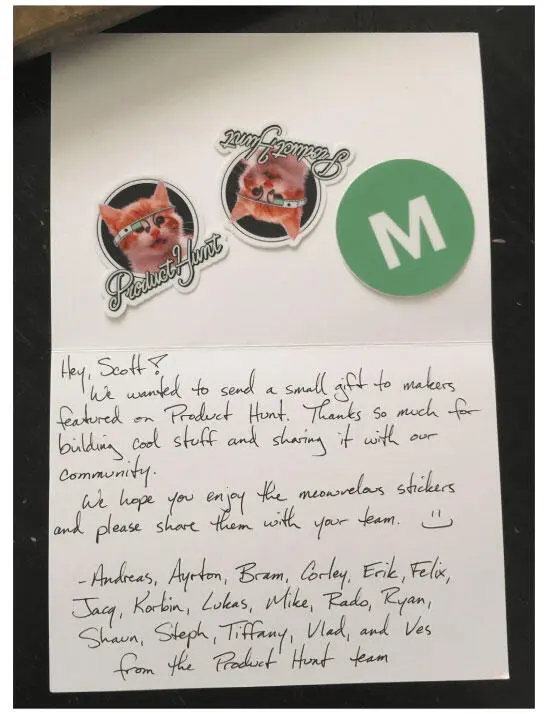 Product Hunt
Product Hunt
M
Hey, Scott!
We wanted to send a small gift to makers
featured on Product Hunt. Thanks so much for
building cool stuff and sharing it with our
community.
We hope you enjoy the meowvelous stickers
and please share them with your team. :)
-Andreas, Ayrton, Bram, Corley, Erik, Felix,
Jacq, Korbin, Lukas, Mike, Rado, Ryan,
Shaun, Steph, Tiffany, Vlad, and Ves
from the Product Hunt team